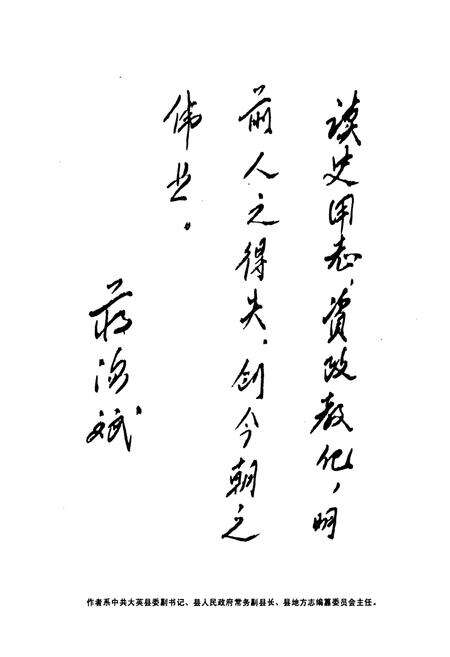 读史用志,资政教化,明
前人之得失,创今朝之
伟业。
蒋海斌
作者系中共大英县委副书记、县人民政府常务副县长、县地方志编纂委员会主任。